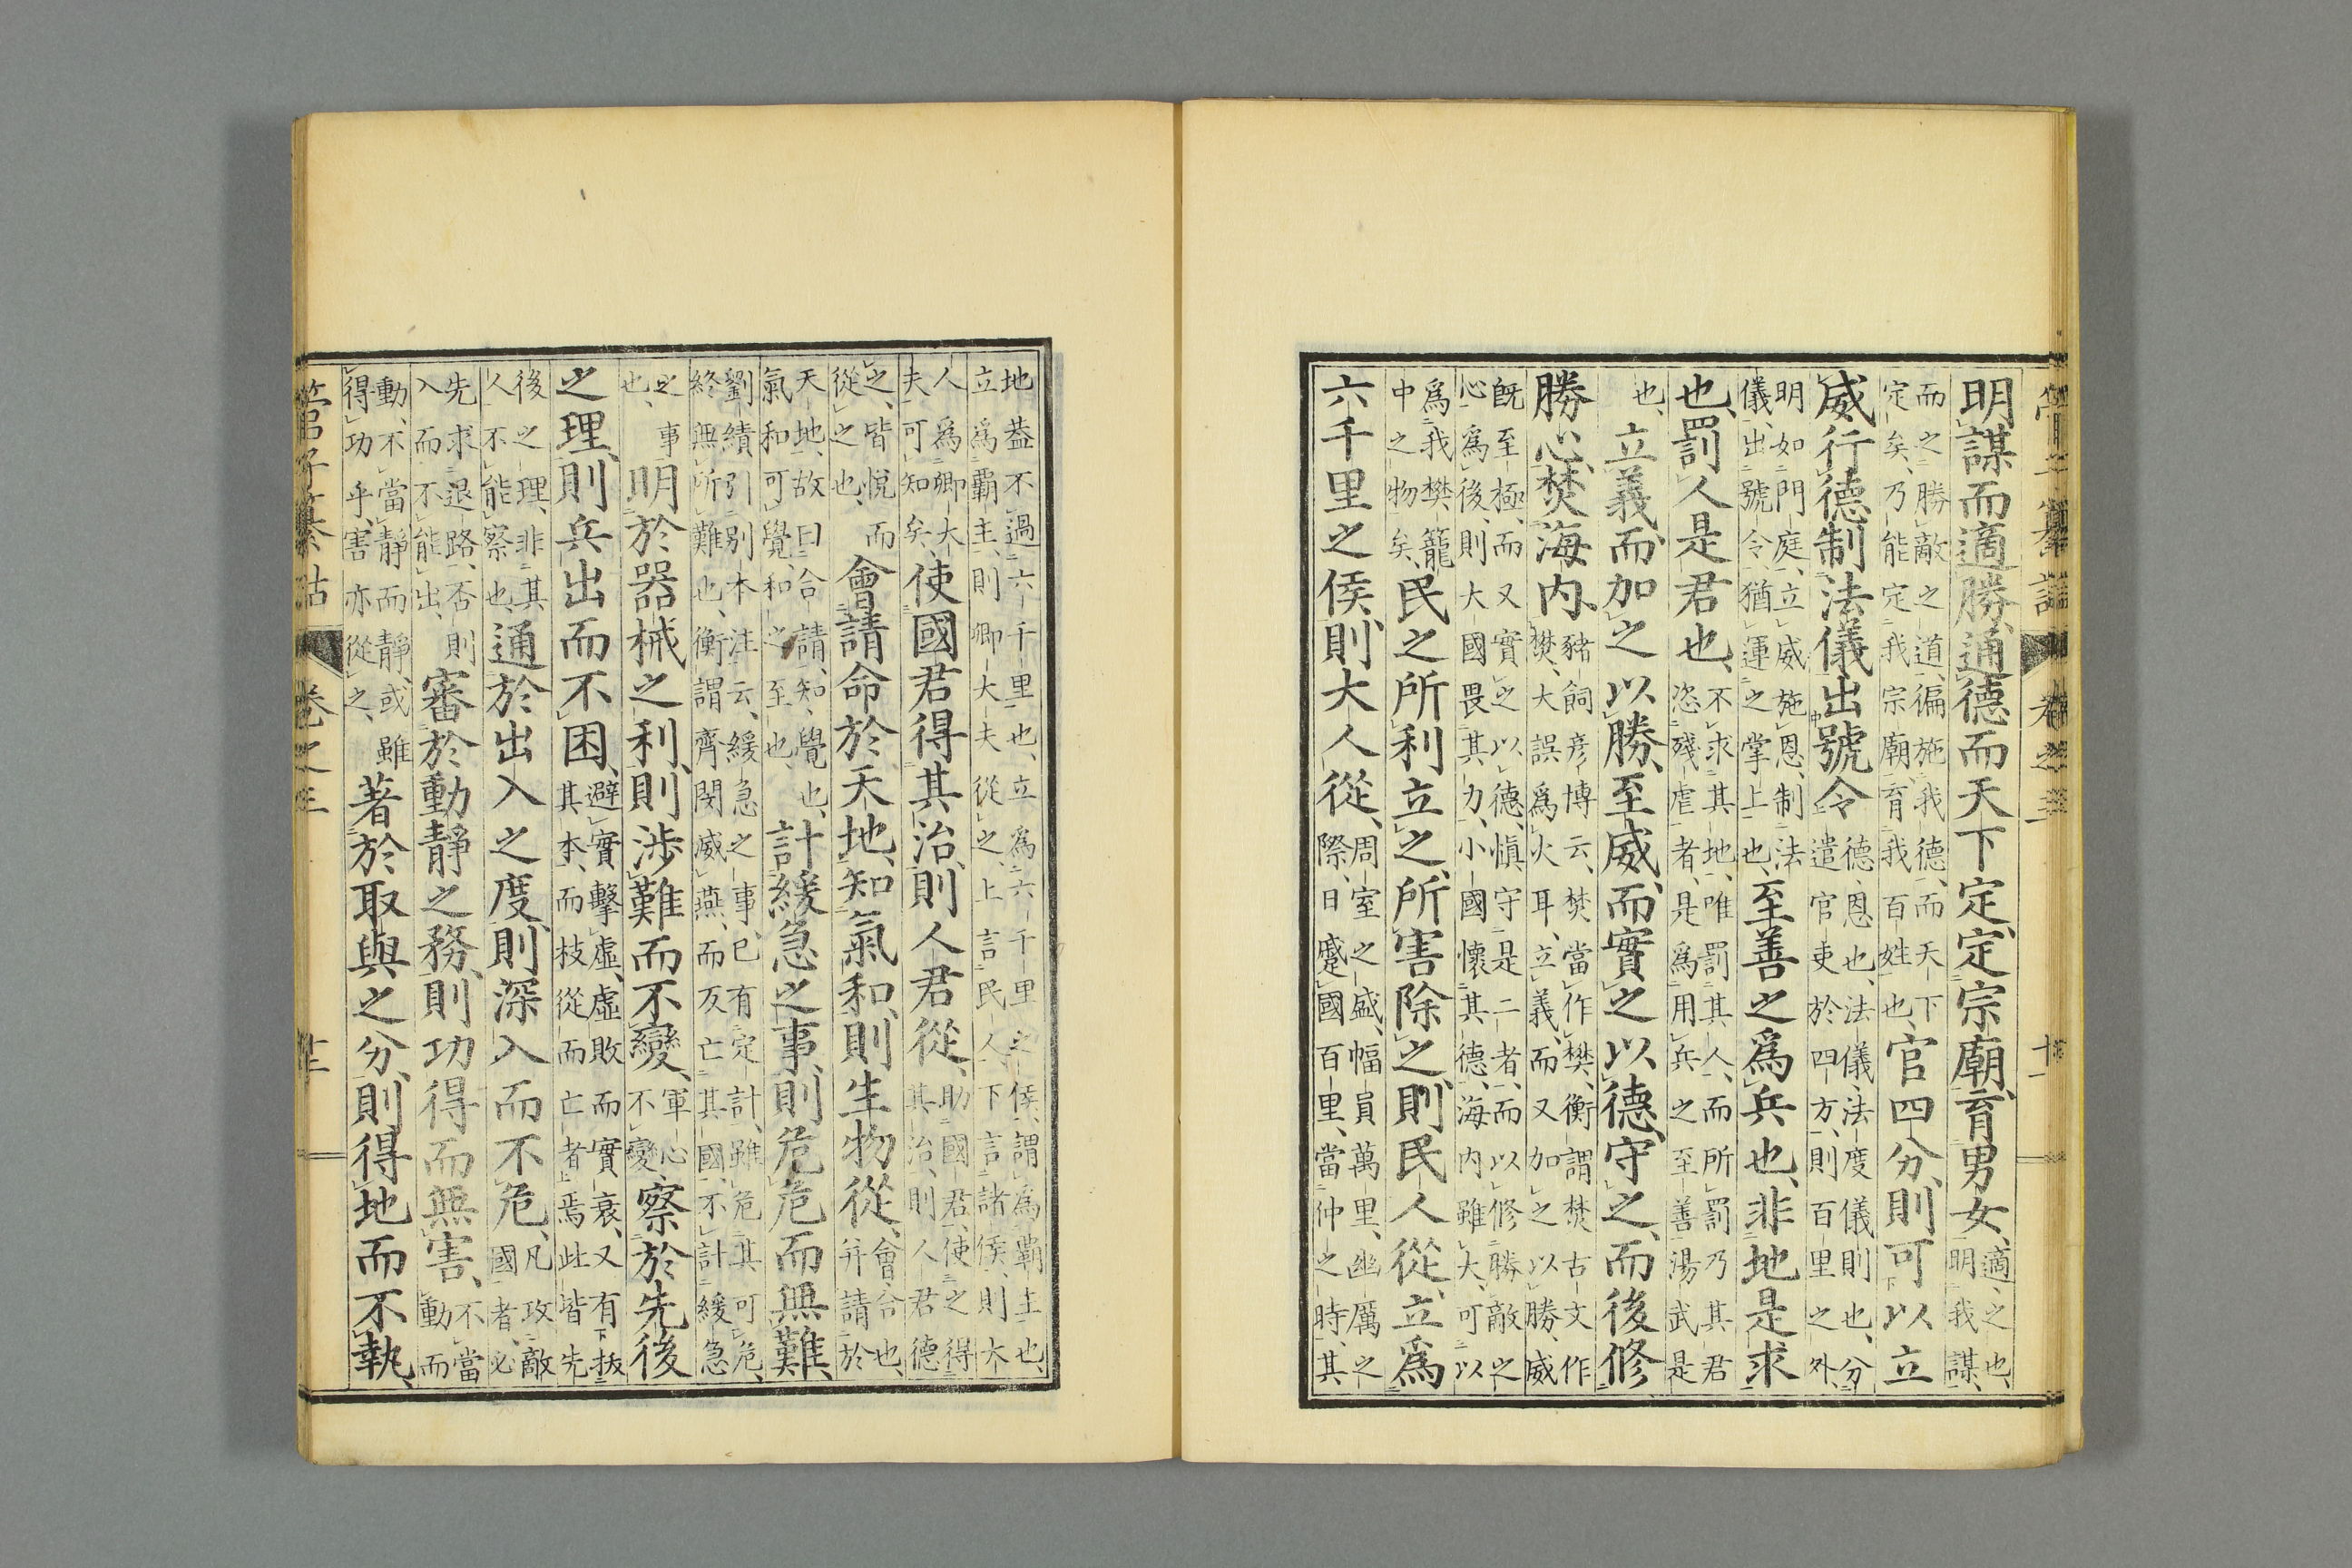 管子纂詁 卷之三 十一
明謀而適勝、通德而天下定、定宗廟、育男女、
適之也、
明我謀、
而之勝敵之道、徧施我德、而天下
定矣、乃能定我宗廟、育我百姓也、
官四分、則可以立
威行德制法儀出號令
德恩也、法儀、法度儀則也、分
遣官吏於四方、則百里之外、
明如門庭、立威施恩、制法
儀、出號令猶運之掌上也、
至善之爲兵也、非地是求
也、罰人是君也、
不求其地、唯罰其人、而所罰乃其君
恣殘虐者、是爲用兵之至善湯武是
也、
立義而加之以勝、至威、而實之以德、守之、而後修
勝心、焚海内、
豬飼彦博云、焚當作樊、衡謂焚古文作
樊、大誤爲火耳、立義、而又加之以勝、威
既至極、而又實之以德、愼守是二者、而以修勝敵之
心爲後、則大國畏其力、小國懷其德、海内雖大、可以
爲我樊籠
中之物矣、
民之所利立之、所害除之、則民人從、立爲
六千里之侯、則大人從、
周室之盛、幅員萬里、幽厲之
際、日蹙國百里、當仲之時、其
地葢不過六千里也、立爲六千里之侯、謂爲霸主也、
立爲霸主、則卿大夫從之、上言民人、下言諸侯、則大
人爲卿大
夫可知矣、
使國君得其治、則人君從、
助國君、使之得
其治、則人君德
之、皆悦而
從之也、
會請命於天地、知氣和、則生物從、
會、合也、
幷請於
天地、故曰合請、知、覺也、
氣和可覺、和之至也、
計緩急之事、則危危而無難、
劉績引別本注云、緩急之事、已有定計、雖危其可危、
終無所難也、衡謂齊閔威燕、而反亡其國、不計緩急
之事
也、
明於器械之利、則涉難而不變、
軍心
不變、
察於先後
之理、則兵出而不困、
避實擊虛、虛敗而實衰、又有拔
其本、而枝從而亡者焉、此皆先
後之理、非其
人不能察也、
通於出入之度、則深入而不危、
凡攻敵
國者、必
先求退路、否則
入而不能出、
審於動靜之務、則功得而無害、
不當
動而
動、不當靜而靜、或雖
得功乎、害亦從之、
著於取與之分、則得地而不執、
管子纂詁 卷之三 十二